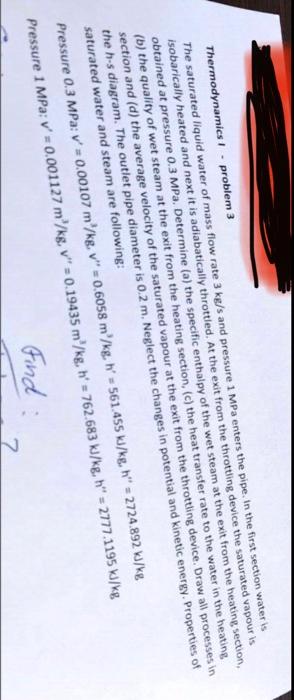 Thermodynamics I - problem 3
The saturated liquid water of mass flow rate 3 kg/s and pressure 1 MPa enters the pipe. In the first section water is
isobarically heated and next it is adiabatically throttled. At the exit from the throttling device the saturated vapour is
obtained at pressure 0.3 MPa. Determine (a) the specific enthalpy of the wet steam at the exit from the heating section,
(b) the quality of wet steam at the exit from the heating section, (c) the heat transfer rate to the water in the heating
section and (d) the average velocity of the saturated vapour at the exit from the throttling device. Draw all processes in
the h-s diagram. The outlet pipe diameter is 0.2 m. Neglect the changes in potential and kinetic energy. Properties of
saturated water and steam are following:
Pressure 0.3 MPa: v' = 0.00107 m³/kg, v" = 0.6058 m³/kg, h' = 561.455 kJ/kg, h" = 2724.892 kJ/kg
Pressure 1 MPa: v' = 0.001127 m³/kg, v" = 0.19435 m³/kg, h' = 762.683 kJ/kg, h" = 2777.1195 kJ/kg
Find :
?